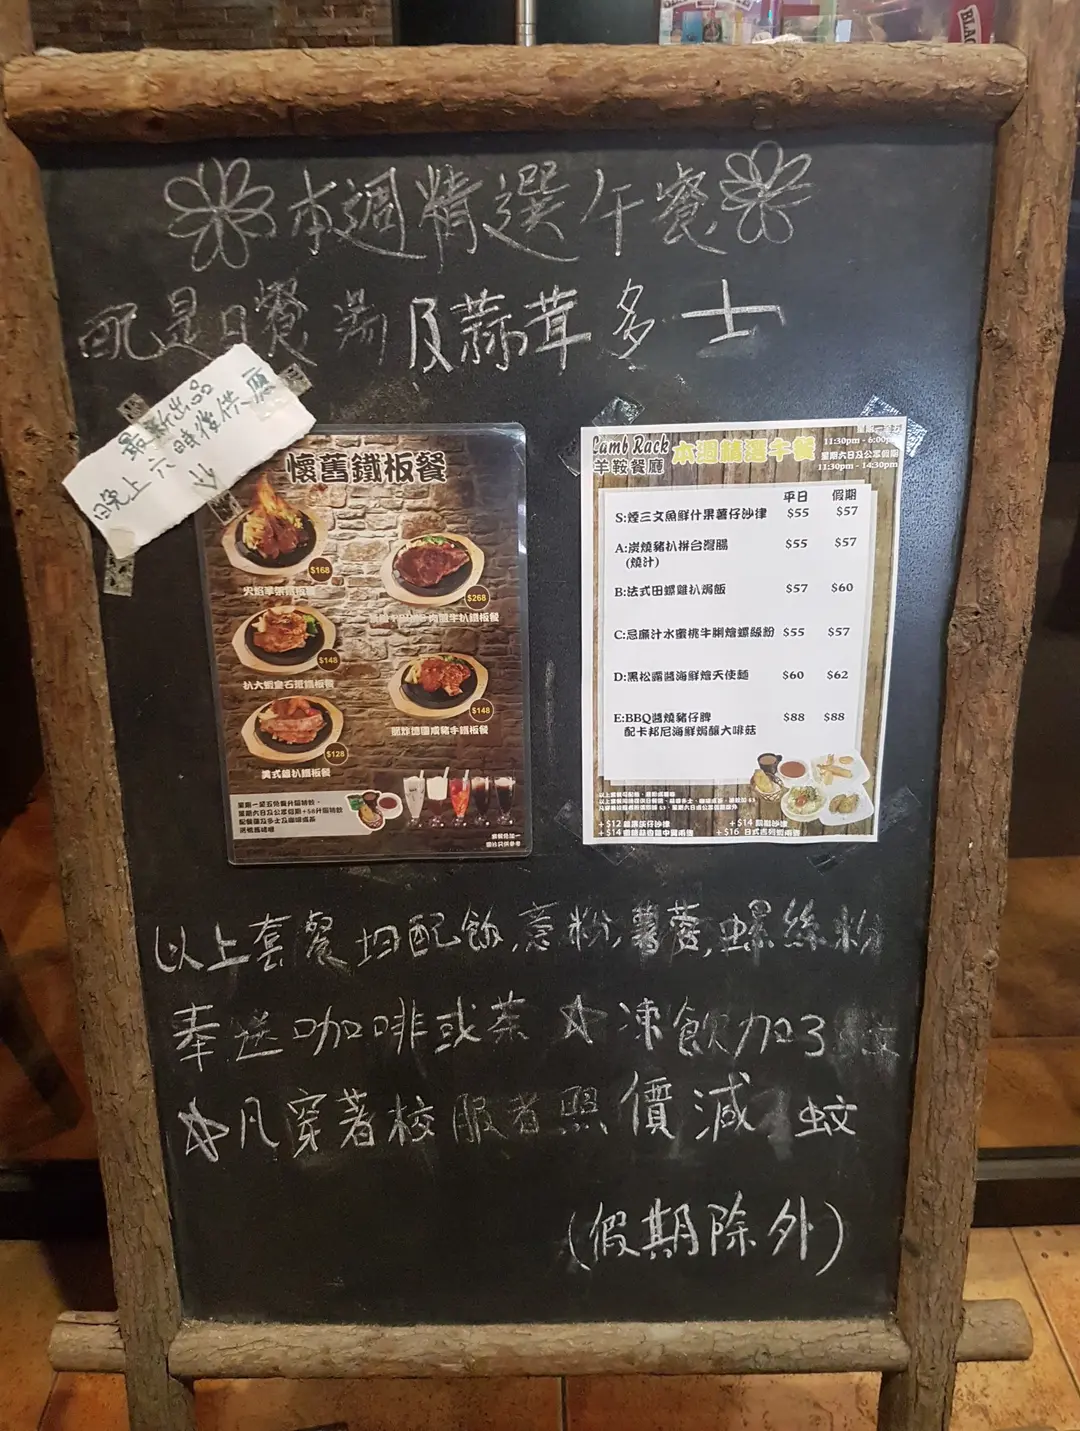 本週精選午餐
配是日餐湯及蒜茸多士
最新出品
晚上六時後供應
懷舊鐵板餐
$168
$268
$148
扒大蝦皇石斑鐵板餐
$148
$128
美式雞扒鐵板餐
Lamb Rack
羊鞍餐廳
本週精選午餐
11:30pm - 6:00pm
星期六日及公眾假期
11:30pm - 14:30pm
平日 假期
S:煙三文魚鮮什果薯仔沙律 $55 $57
A:炭燒豬扒拼台灣腸 $55 $57
(燒汁)
B:法式田螺雞扒焗飯 $57 $60
C:忌廉汁水蜜桃牛脷燴螺絲粉 $55 $57
D:黑松露醬海鮮燴天使麵 $60 $62
E:BBQ醬燒豬仔脾 $88 $88
配卡邦尼海鮮焗釀大啡菇
以上套餐均配飯,意粉,薯蓉,螺絲粉
奉送咖啡或茶 ☆凍飲加3
☆凡穿著校服者照價減 蚊
(假期除外)